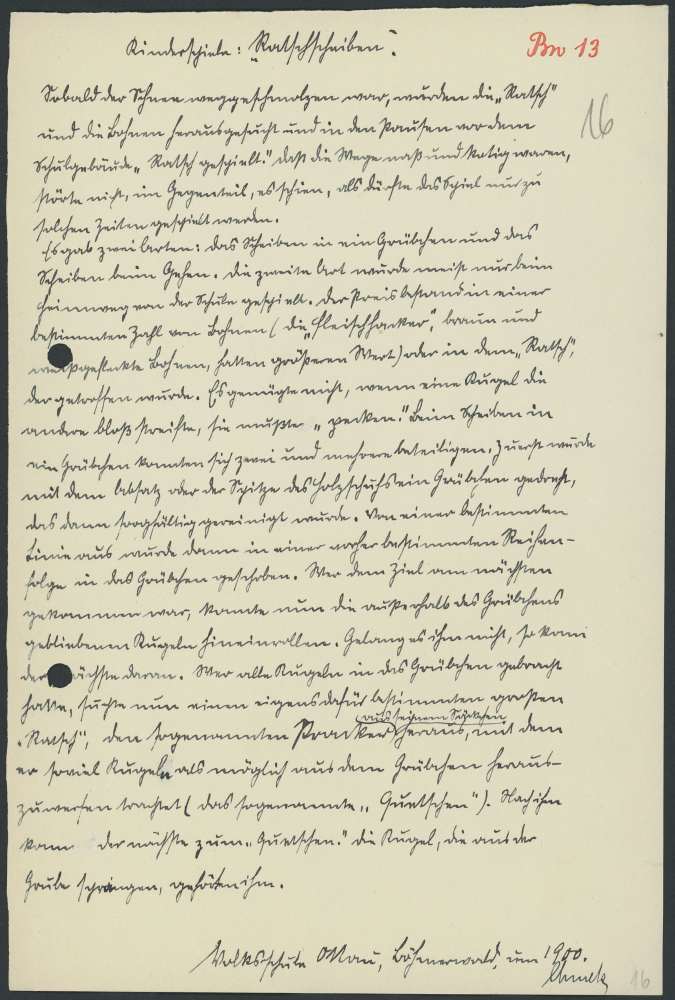 Kinderspiele: "Ratschscheiben".
Bm 13
16
Sobald der Schnee weggeschmolzen war, wurden die "Ratsch"
und die Bohnen herausgesucht und in den Pausen vor dem
Schulgebäude "Ratsch gespielt." Daß die Wege naß und kotig waren,
störte nicht, im Gegenteil, es schien, als dürfte das Spiel nur zu
solchen Zeiten gespielt werden.
Es gab zwei Arten: das Scheiben in ein Grübchen und das
Scheiben beim Gehen. Die zweite Art wurde meist nur beim
Heimweg von der Schule gespielt. Der Preis bestand in einer
bestimmten Zahl von Bohnen (die "Fleischhacker", braun und
weißgefleckte Bohnen, hatten größeren Wert) oder in dem "Ratsch",
der getroffen wurde. Es genügte nicht, wenn eine Kugel die
andere bloß streifte, sie mußte "pecken." Beim Scheiben in
ein Grübchen konnten sich zwei und mehrere beteiligen. Zuerst wurde
mit dem Absatz oder der Spitze des Holzschuhs ein Grübchen gedreht,
das dann sorgfältig gereinigt wurde. Von einer bestimmten
Linie aus wurde dann in einer vorher bestimmten Reihen-
folge in das Grübchen geschoben. Wer dem Ziel am nächsten
gekommen war, konnte nun die außerhalb des Grübchens
gebliebenen Kugeln hineinrollen. Gelang es ihm nicht, so kam
der nächste daran. Wer alle Kugeln in das Grübchen gebracht
hatte, suchte nun einen eigens dafür bestimmten großen
aus seinem Säckchen
"Ratsch", den sogenannten Pracker heraus, mit dem
er soviel Kugeln als möglich aus dem Grübchen heraus-
zuwerfen trachtet (das sogenannte "Quetschen"). Nach ihm
kam der nächste zum "Quetschen." Die Kugel, die aus der
Grube sprangen, gehörten ihm.
Volksschule Ottau, Böhmerwald, um 1900.
16